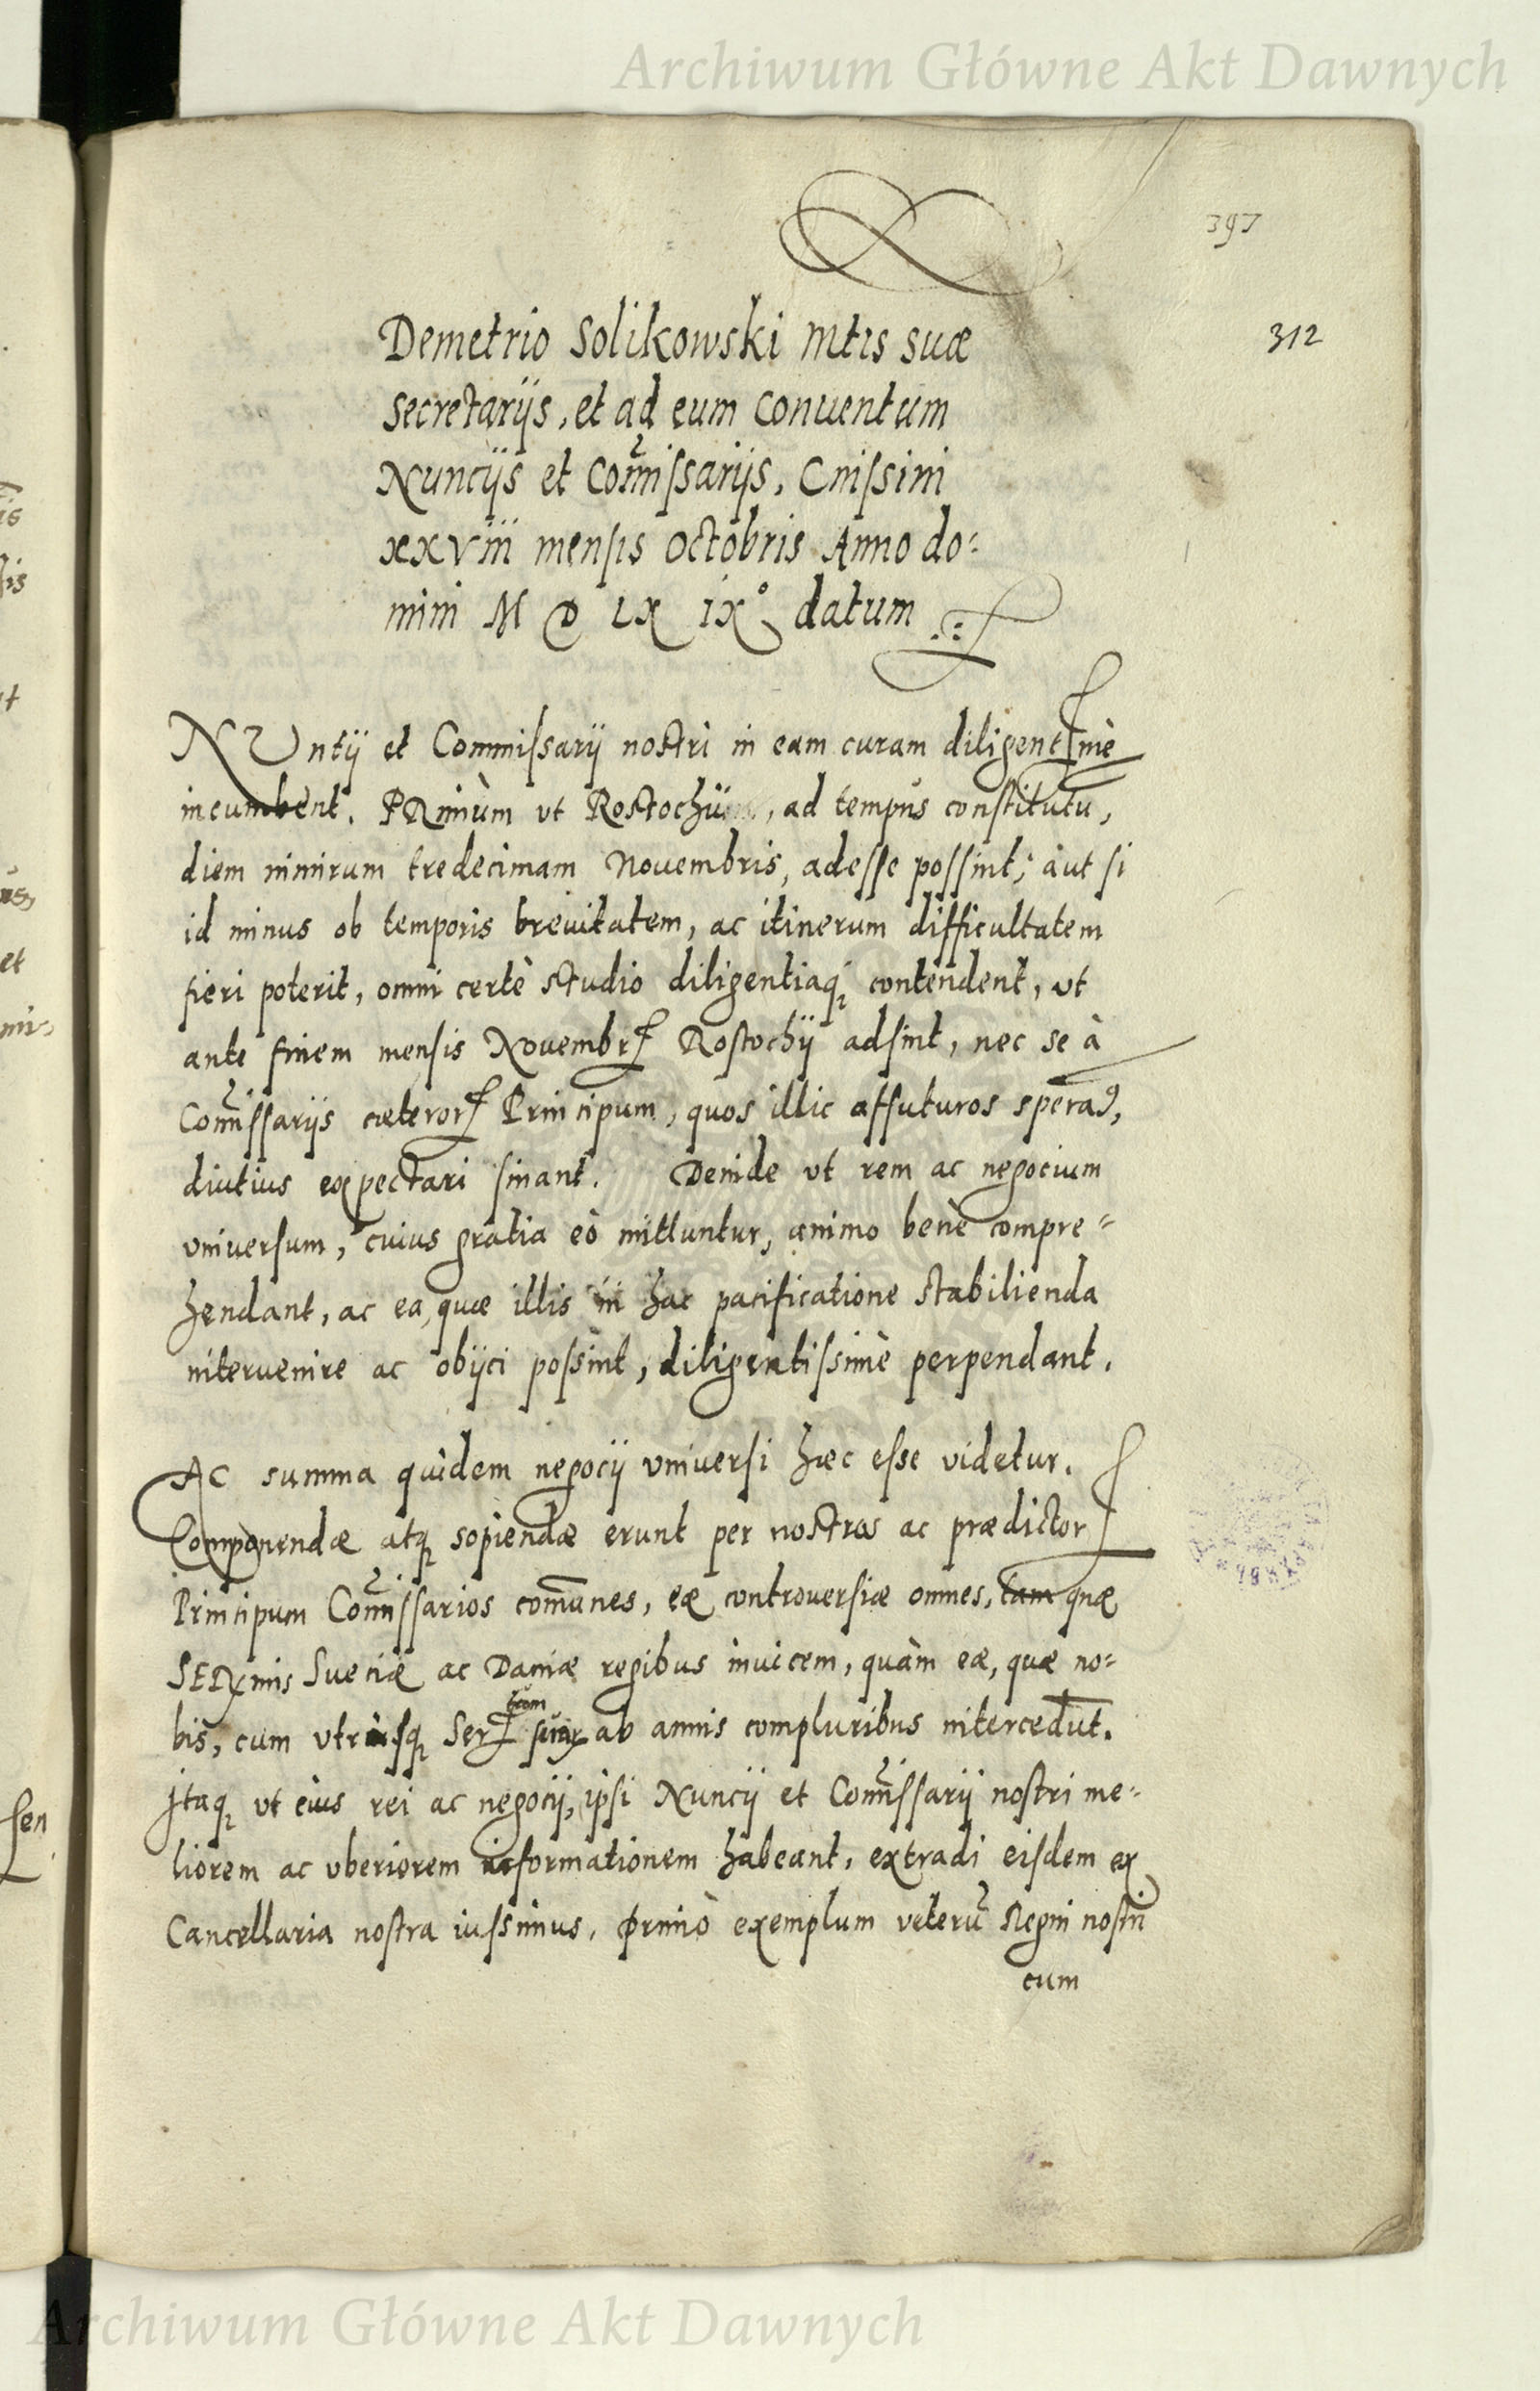 Archiwum Główne Akt Dawnych
397
312
Demetrio Solikowski Mtis suæ
secretarijs, et ad eum Conuentum
Nuncijs et Comissarijs, Cnissini
xxviii mensis Octobris Anno do:
mini M D LX IX° datum
NUntij et Commissarij nostri in eam curam diligentssimè
incumbent. PRimùm vt Rostochij, ad tempus constitutū,
diem nimirum tredecimam Nouembris, adesse possint; aut si
id minus ob temporis breuitatem, ac itinerum difficultatem
fieri poterit, omni certè studio diligentiaq; contendent, vt
ante finem mensis Nouembr Rostochij adsint, nec se à
Comissarijs cæteror Principum, quos illic affuturos speram9,
diutius expectari sinant. Deinde vt rem ac negocium
vniuersum, cuius gratia eò mittuntur, animo benè compre=
hendant, ac ea, quæ illis in hac pacificatione stabilienda
interuenire ac obijci possint, diligentissimè perpendant.
AC summa quidem negocij vniuersi hæc esse videtur.
Componendæ atq; sopiendæ erunt per nostros ac prædictor
Principum Comissarios comunes, eæ controuersiæ omnes, tam quæ
SERmis Sueciæ ac Daniæ regibus inuicem, quàm eæ, quæ no=
tum
bis, cum vtriusq; Ser ab annis compluribus intercedūt.
Itaq; vt eius rei ac negocij, ipsi Nuncij et Comissarij nostri me=
liorem ac vberiorem informationem habeant, extradi eisdem ex
Cancellaria nostra iussimus, primò exemplum veterū Regni nostri
cum
Archiwum Główne Akt Dawnych